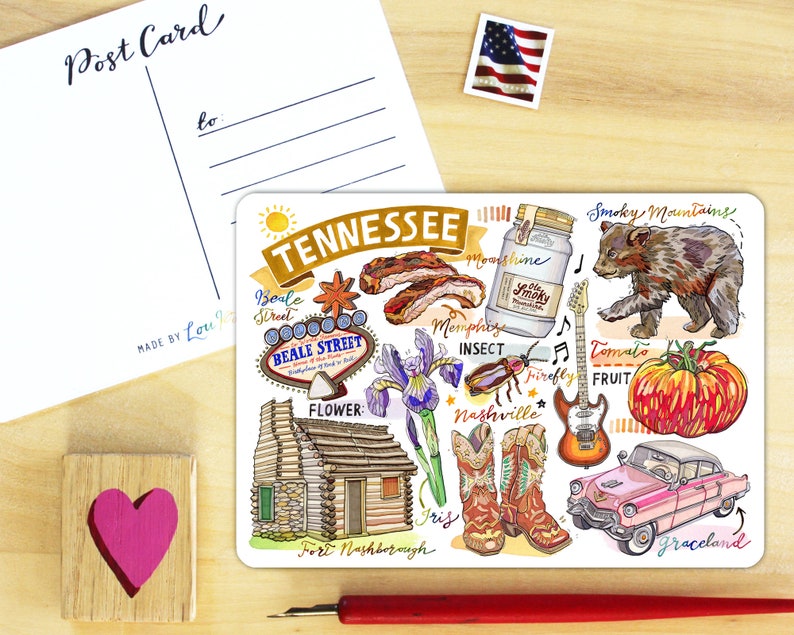 Post Card
to:
MADE BY Lou
TENNESSEE
Smoky Mountains
Moonshine
Ole
Smoky
Moonshine
Beale
Street
WELCOME
BEALE STREET
Home of the Blues
Birthplace of Rock 'n' Roll
Memphis
INSECT
Firefly
Tomato
FRUIT
FLOWER:
Nashville
Iris
Fort Nashborough
Graceland